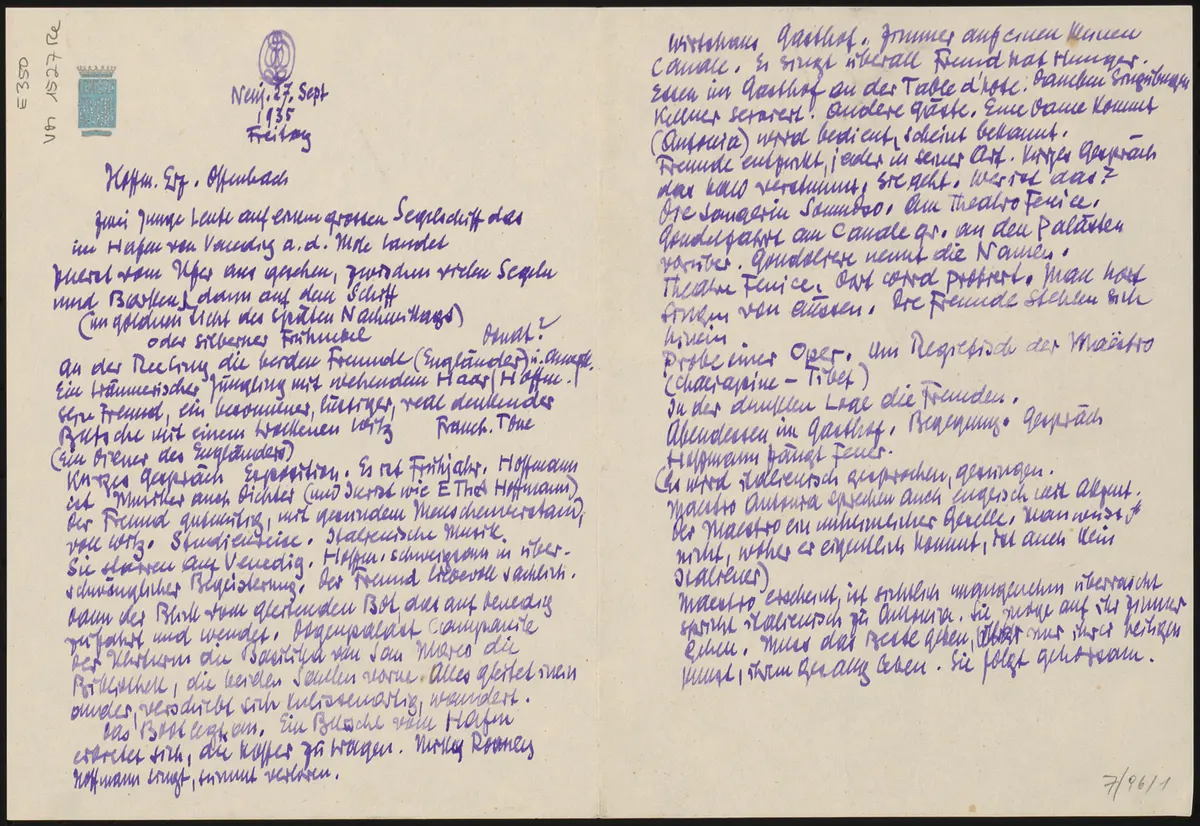 E 350
Von 1527 Re
27. Sept
1935
Freitag
Hoffm. Erz. Offenbach
Zwei junge Leute auf einem grossen Segelschiff das
im Hafen von Venedig a. d. landet
Zuerst vom Ufer aus gesehen, zwischen vielen Segeln
und Barken, dann auf dem Schiff
(im goldnen Licht des späten Nachmittags)
oder silberner Frühnebel
An der Reeling die beiden Freunde (Engländer)
Ein träumerischer Jüngling mit wehendem Haar (Hoffm.)
Sein Freund, ein besonnener, lustiger, real denkender
Bursche mit einem trockenen Witz Franch. Tone
(Ein Diener des Engländers)
Kurzes Gespräch Exposition. Es ist Frühjahr. Hoffmann
ist Musiker auch Dichter (und Jurist wie E Th A Hoffmann)
Der Freund gutmütig, mit gesundem Menschenverstand,
von Witz. Studienreise. Italienische Musik.
Sie starren auf Venedig. Hoffm. schweigsam in über-
schwänglicher Begeisterung. Der Freund liebevoll sachlich.
Dann der Blick vom gleitenden Bot das auf Venedig
zufährt und wendet. Dogenpalast Campanile
der Uhrturm die Basilika von San Marco die
Bibliothek, die beiden Säulen vorne. Alles gleitet inein
ander, verschiebt sich kulissenartig, wandert.
Das Boot legt an. Ein Bursche vom Hafen
erbietet sich, die Koffer zu tragen. Micky Rooney
Hoffmann singt, summt verloren.
Wirtshaus Gasthof. Zimmer auf einen kleinen
Canale. Es singt überall Freund hat Hunger.
Essen im Gasthof an der Table d'hote. Daneben Singübungen
Kellner serviert. Andere Gäste. Eine Dame kommt
(Antonia) wird bedient, scheint bekannt.
Freunde entzückt, jeder in seiner Art. Kurzes Gespräch
das bald verstummt, sie geht. Wer ist das?
Die Sängerin. Am Theatro Fenice.
Gondelfahrt am Canale gr. an den Palästen
vorüber. Gondoliere nennt die Namen.
Theatro Fenice. Dort wird probiert. Man hört
singen von aussen. Die Freunde stehlen sich
hinein
Probe einer Oper. Am Regietisch der Maëstro
In der dunklen Loge die Fremden.
Abendessen im Gasthof. Begegnung. Gespräch
Hoffmann fängt Feuer.
(Es wird italienisch gesprochen, gesungen.
Maestro Antonia sprechen auch englisch mit Akzent.
Der Maestro ein unheimlicher Geselle. Man weiss
nicht, woher er eigentlich kommt, ist auch kein
Italiener)
Maestro erscheint, ist sichtlich unangenehm überrascht
spricht italienisch zu Antonia. Sie möge auf ihr Zimmer
gehen. Muss das Beste geben, nur ihrer heiligen
Kunst, ihrem Gesang leben. Sie folgt gehorsam.
7/96/1